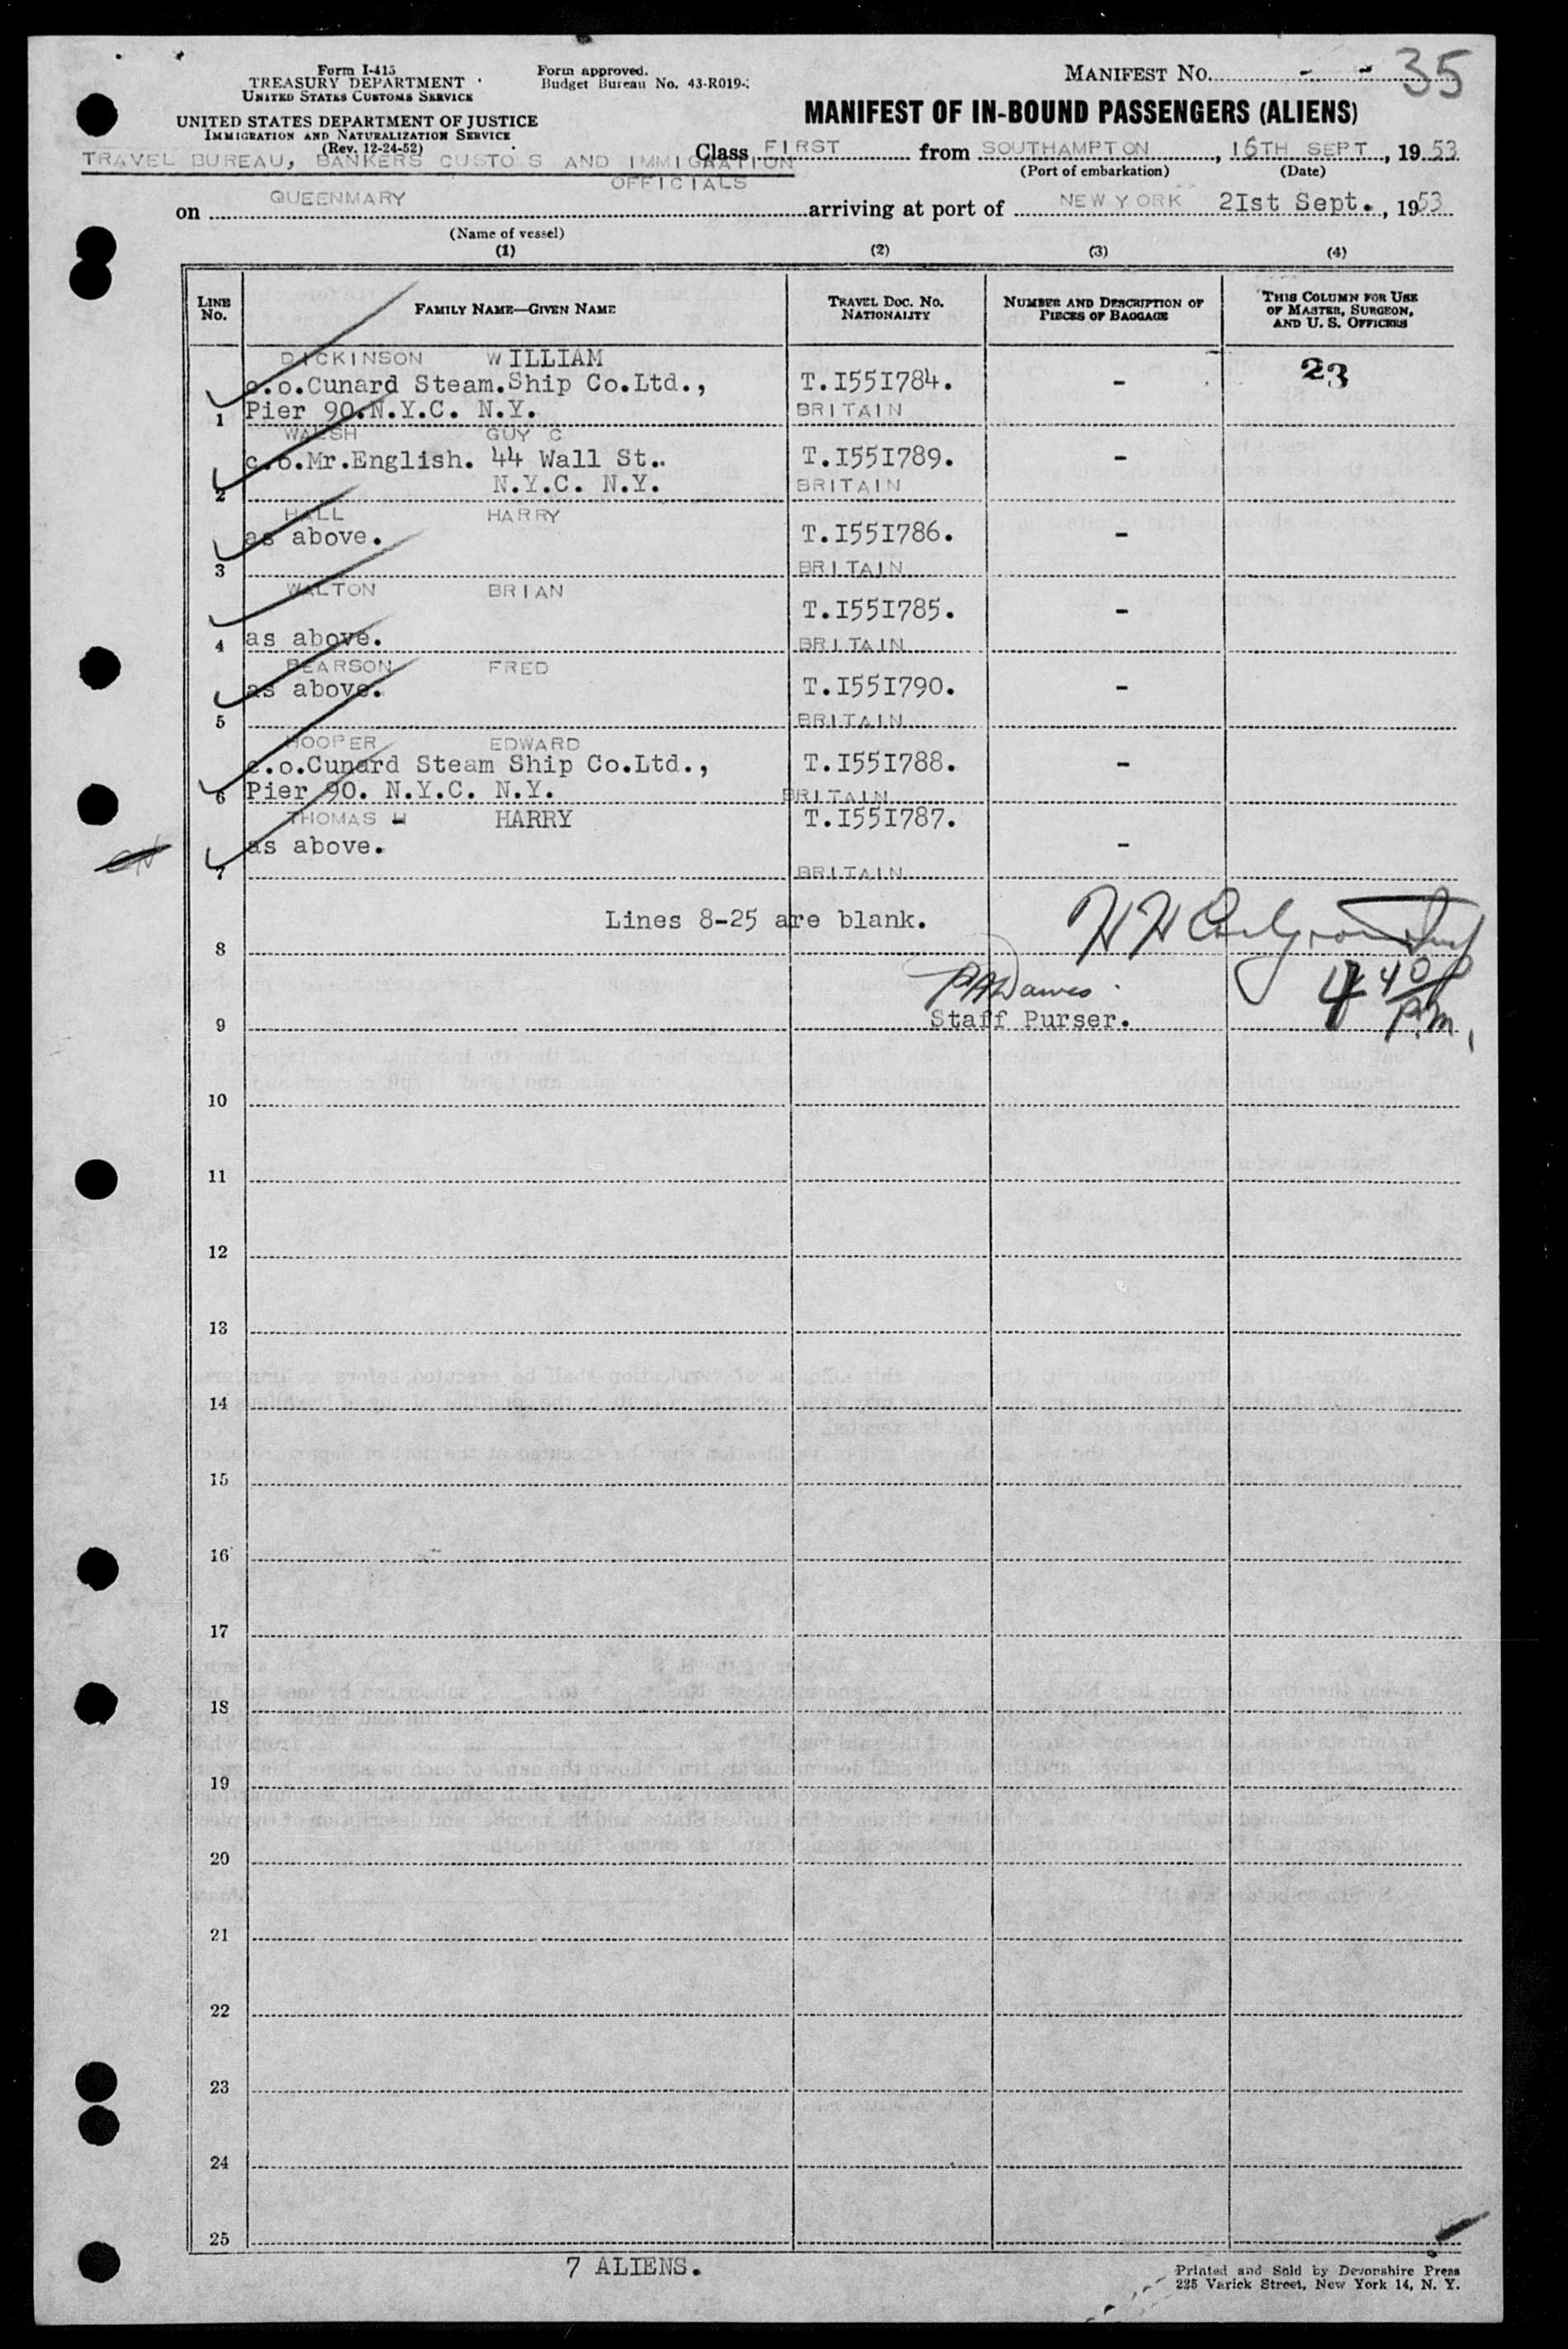 Form I-415
TREASURY DEPARTMENT
UNITED STATES CUSTOMS SERVICE
Form approved.
Budget Bureau No. 43-R019-
MANIFEST NO. - - 35
UNITED STATES DEPARTMENT OF JUSTICE
IMMIGRATION AND NATURALIZATION SERVICE
(Rev. 12-24-52)
MANIFEST OF IN-BOUND PASSENGERS (ALIENS)
TRAVEL BUREAU, BANKERS CUSTO S AND IMMIGRATION
OFFICIALS
Class FIRST from SOUTHAMPTON, 16TH SEPT, 1953
(Port of embarkation) (Date)
on QUEENMARY arriving at port of NEW YORK 2Ist Sept., 1953
(Name of vessel)
(1) (2) (3) (4)
LINE No. FAMILY NAME—GIVEN NAME TRAVEL DOC. NO. NATIONALITY NUMBER AND DESCRIPTION OF PIECES OF BAGGAGE THIS COLUMN FOR USE OF MASTER, SURGEON, AND U. S. OFFICERS
DICKINSON WILLIAM 23
c.o.Cunard Steam.Ship Co.Ltd., T.I55I784. -
1 Pier 90.N.Y.C. N.Y. BRITAIN
WALSH GUY C
c.o.Mr.English. 44 Wall St.. T.I55I789. -
2 N.Y.C. N.Y. BRITAIN
HALL HARRY
as above. T.I55I786. -
3 BRITAIN
WALTON BRIAN
T.I55I785. -
4 as above. BRITAIN
PEARSON FRED
as above. T.I55I790. -
5 BRITAIN
HOOPER EDWARD
c.o.Cunard Steam Ship Co.Ltd., T.I55I788. -
6 Pier 90. N.Y.C. N.Y. BRITAIN
THOMAS H HARRY T.I55I787.
as above. -
7 BRITAIN
Lines 8-25 are blank.
8
4 40
P.M.
9 Staff Purser.
10
11
12
13
14
15
16
17
18
19
20
21
22
23
24
25
7 ALIENS.
Printed and Sold by Devonshire Press
225 Varick Street, New York 14, N. Y.